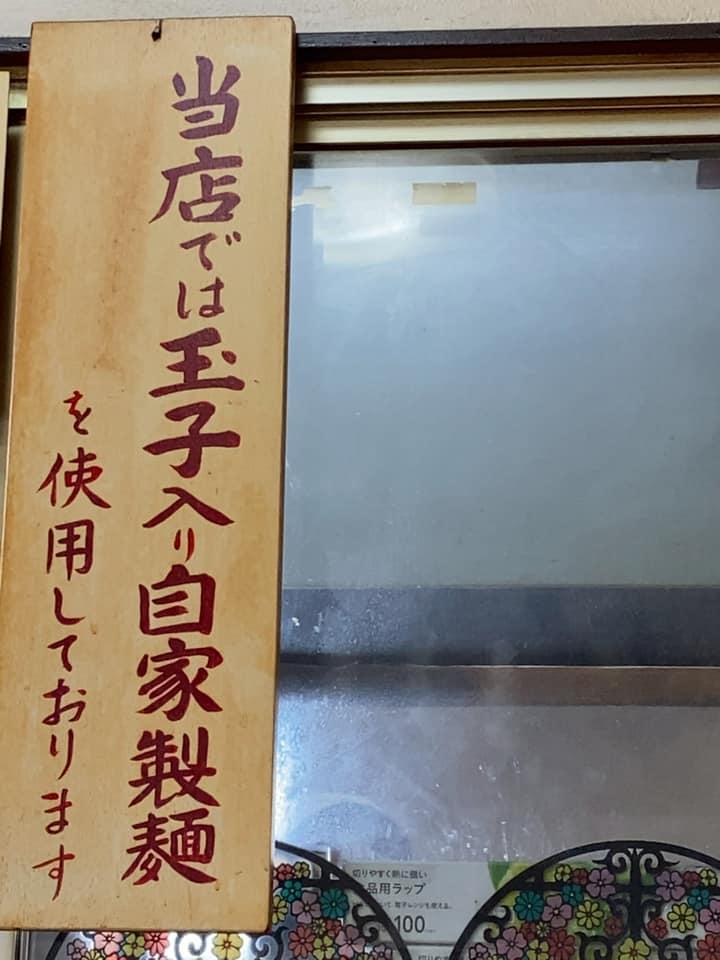 当店では玉子入り自家製麺
を使用しております
切りやすく熱に強い
品用ラップ
100